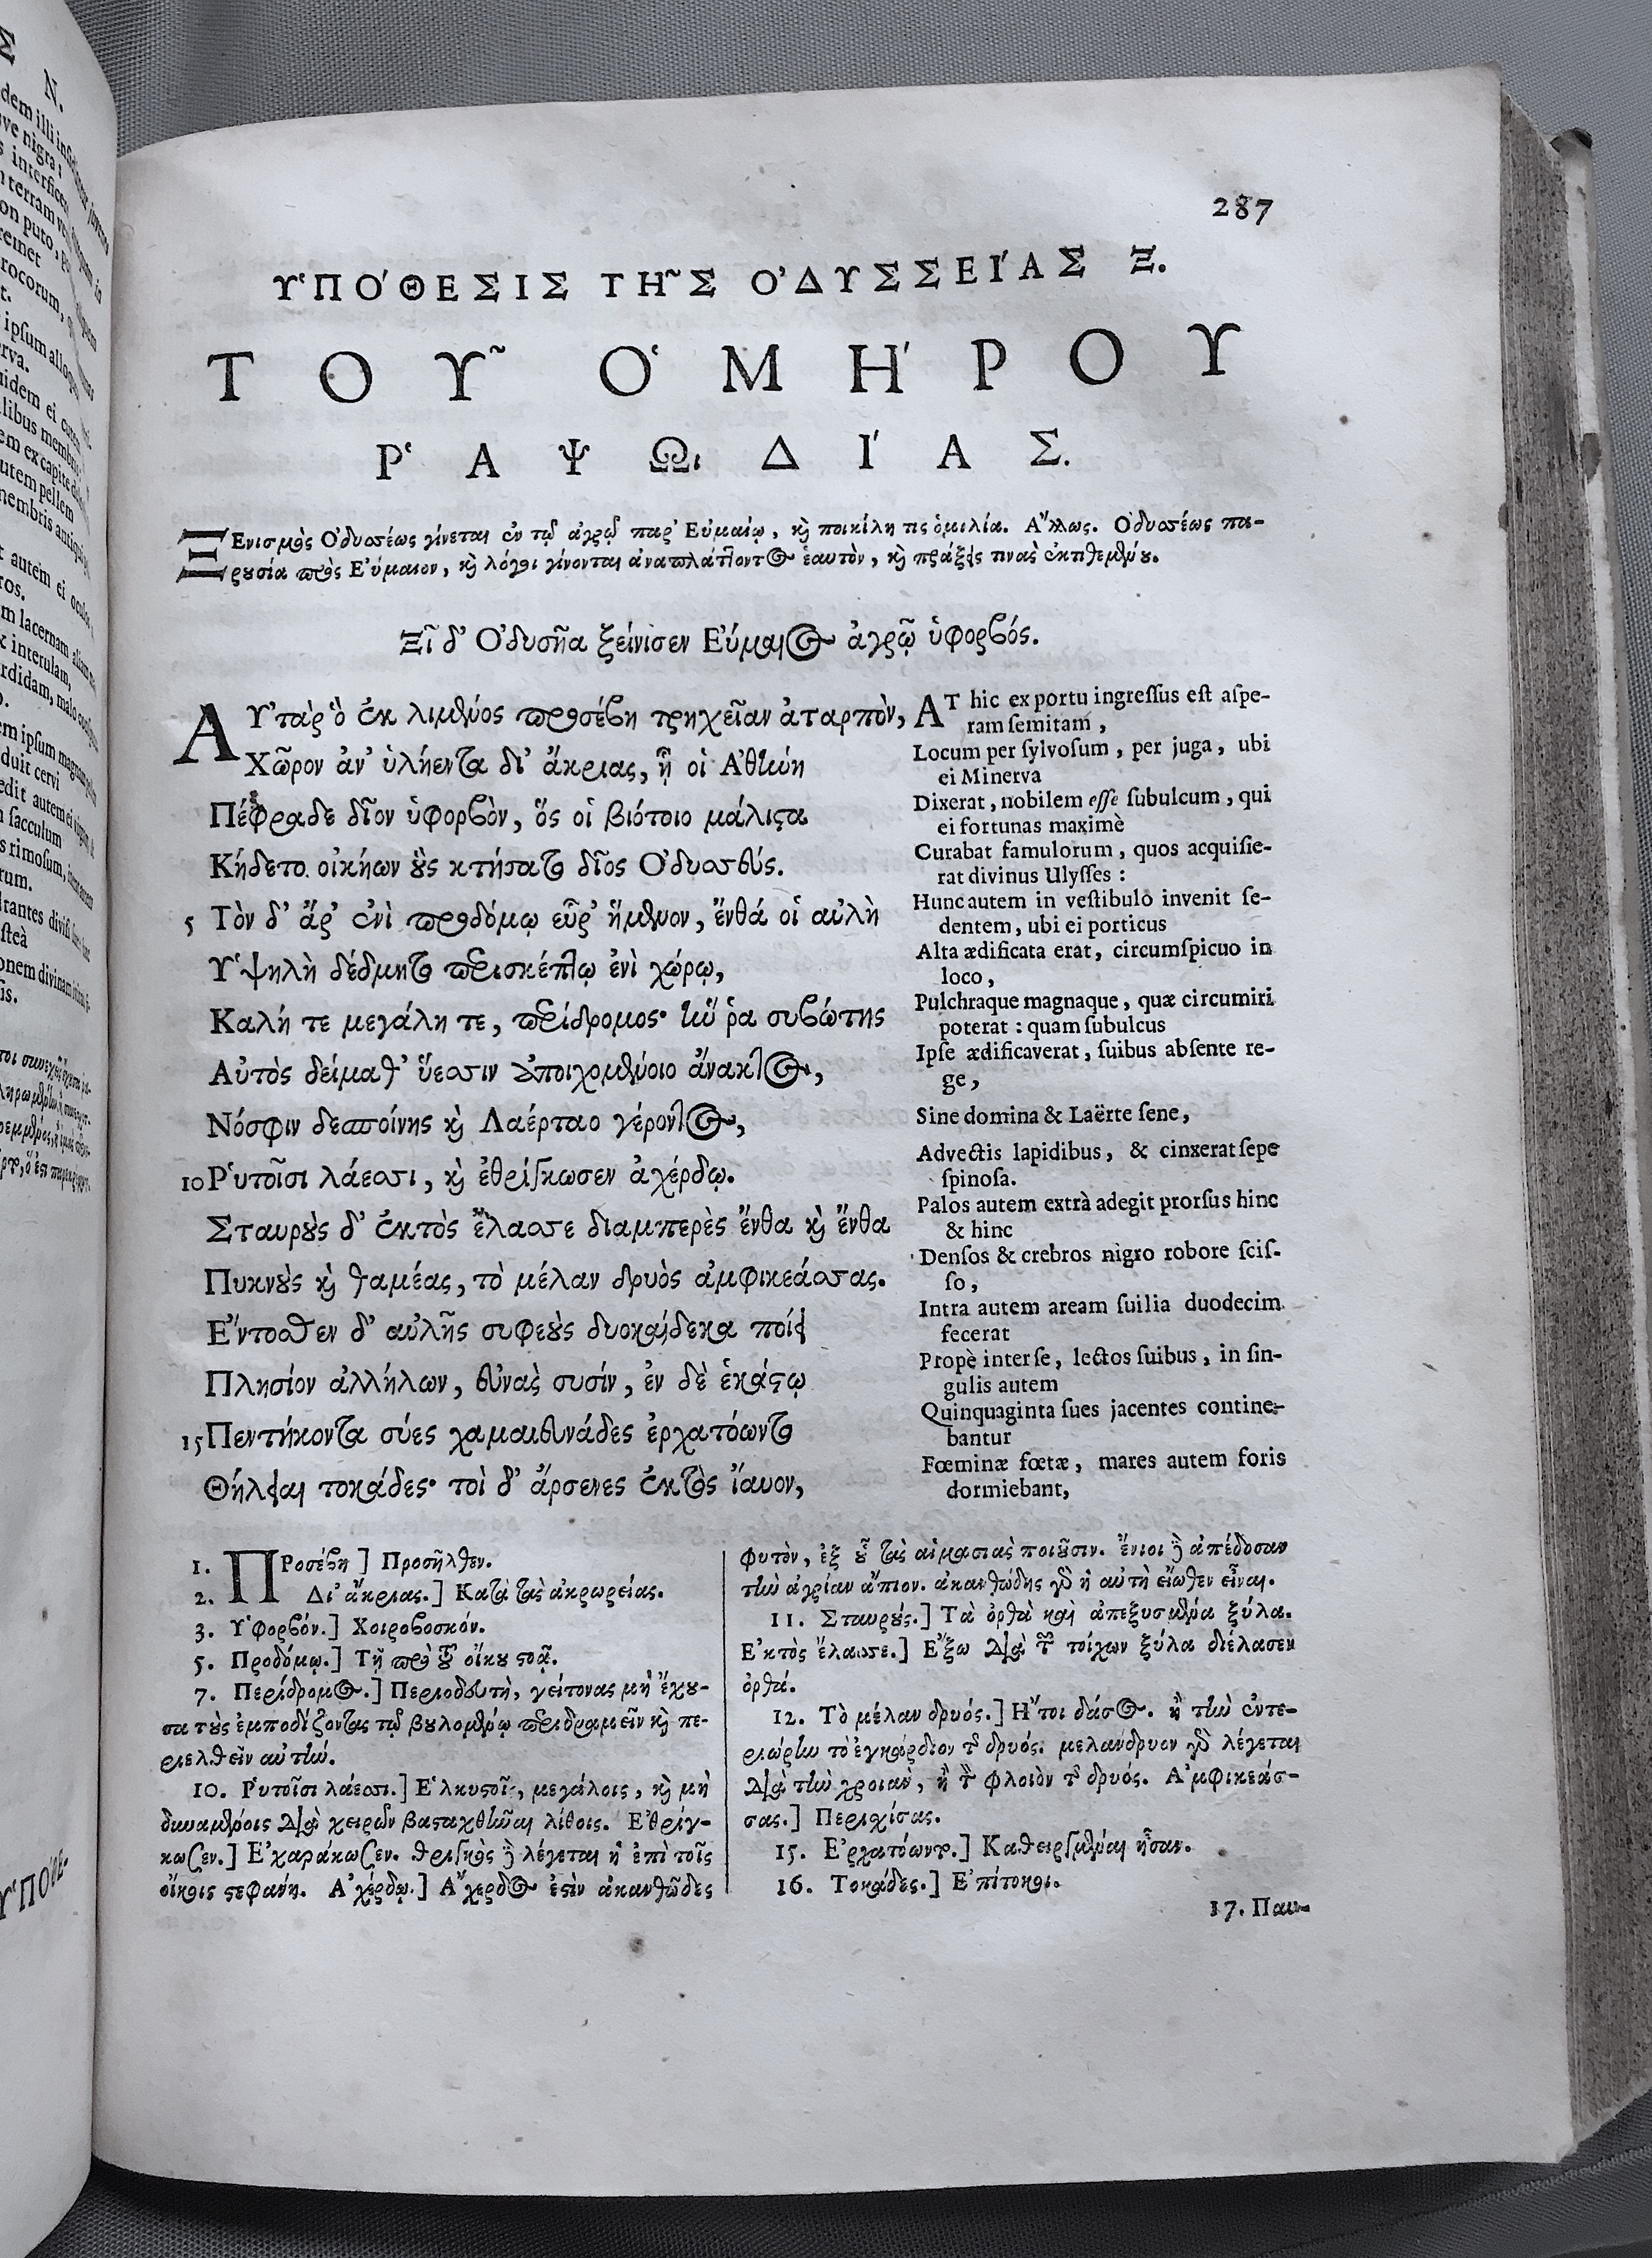 287
ΥΠΟΘΕΣΙΣ ΤΗΣ ΟΔΥΣΣΕΙΑΣ Ξ.
ΤΟΥ ΟΜΗΡΟΥ
ΡΑΨΩΔΙΑΣ.
ΞΕνισμὸς Ὀδυσσέως γίνεται ἐν τῷ ἀγρῷ παρ' Εὐμαίῳ, καὶ ποικίλη τις ὁμιλία. Ἄλλως. Ὀδυσσέως πα-
ρουσία πρὸς Εὔμαιον, καὶ λόγοι γίνονται ἀναπλάττοντος ἑαυτὸν, καὶ πράξεις τινας ἐκτιθεμένου.
Ξῖ δ' Ὀδυσῆα ξείνισεν Εὔμαιος ἀγρῷ ὑφορβός.
ΑΥ'τὰρ ὁ ἐκ λιμένος προσέβη τρηχεῖαν ἀταρπὸν,
Χῶρον ἀν' ὑλήεντα δι' ἄκριας, ᾗ οἱ Ἀθήνη
Πέφραδε δῖον ὑφορβὸν, ὅς οἱ βιότοιο μάλιστα
Κήδετο οἰκήων οὓς κτήσατο δῖος Ὀδυσσεύς.
5 Τὸν δ' ἄρ' ἐνὶ προδόμῳ εὗρ' ἥμενον, ἔνθά οἱ αὐλὴ
Ὑψηλὴ δέδμητο περισκέπτῳ ἐνὶ χώρῳ,
Καλή τε μεγάλη τε, περίδρομος· ἥν ῥα συβώτης
Αὐτὸς δείμαθ' ὕεσσιν ἀποιχομένοιο ἄνακτος,
Νόσφιν δεσποίνης καὶ Λαέρταο γέροντος,
10 Ῥυτοῖσι λάεσσι, καὶ ἐθρίγκωσεν ἀχέρδῳ.
Σταυροὺς δ' ἐκτὸς ἔλασσε διαμπερὲς ἔνθα καὶ ἔνθα
Πυκνοὺς καὶ θαμέας, τὸ μέλαν δρυὸς ἀμφικεάσσας.
Ἔντοσθεν δ' αὐλῆς συφεοὺς δυοκαίδεκα ποίει
Πλησίον ἀλλήλων, εὐνὰς συσίν, ἐν δὲ ἑκάστῳ
15 Πεντήκοντα σύες χαμαιευνάδες ἐρχατόωντο
Θήλειαι τοκάδες· τοὶ δ' ἄρσενες ἐκτὸς ἴαυον,
AT hic ex portu ingressus est aspe-
ram semitam,
Locum per sylvosum, per juga, ubi
ei Minerva
Dixerat, nobilem esse subulcum, qui
ei fortunas maximè
Curabat famulorum, quos acquisie-
rat divinus Ulysses:
Hunc autem in vestibulo invenit se-
dentem, ubi ei porticus
Alta ædificata erat, circumspicuo in
loco,
Pulchraque magnaque, quæ circumiri
poterat: quam subulcus
Ipse ædificaverat, suibus absente re-
ge,
Sine domina & Laërte sene,
Advectis lapidibus, & cinxerat sepe
spinosa.
Palos autem extrà adegit prorsus hinc
& hinc
Densos & crebros nigro robore scis-
so,
Intra autem aream suilia duodecim
fecerat
Propè inter se, lectos suibus, in sin-
gulis autem
Quinquaginta sues jacentes contine-
bantur
Fœminæ fœtæ, mares autem foris
dormiebant,
1. ΠΡοσέβη] Προσῆλθεν.
2. Δι' ἄκριας.] Κατὰ τὰς ἀκρωρείας.
3. Ὑφορβόν.] Χοιροβοσκόν.
5. Προδόμῳ.] Τῇ πρὸ τοῦ οἴκου στοᾷ.
7. Περίδρομος.] Περιοδευτὴ, γείτονας μὴ ἔχου-
σα τοὺς ἐμποδίζοντας τῷ βουλομένῳ περιδραμεῖν καὶ πε-
ριελθεῖν αὐτήν.
10. Ῥυτοῖσι λάεσσι.] Ἑλκυστοῖς, μεγάλοις, καὶ μὴ
δυναμένοις διὰ χειρῶν βασταχθῆναι λίθοις. Ἐθρίγ-
κωσεν.] Ἐχαράκωσεν. θριγκὸς δὲ λέγεται ἡ ἐπὶ τοῖς
οἴκοις στεφάνη. Ἀχέρδῳ.] Ἄχερδος ἐστὶν ἀκανθῶδες
φυτὸν, ἐξ οὗ τὰς αἱμασιὰς ποιοῦσιν. ἔνιοι δὲ ἀπέδοσαν
τὴν ἀγρίαν ἄπιον. ἀκανθώδης γὰρ ἡ αὐτὴ εἴωθεν εἶναι.
11. Σταυρούς.] Τὰ ὀρθὰ καὶ ἀπεξυσμένα ξύλα.
Ἐκτὸς ἔλασσε.] Ἔξω διὰ τῶν τοίχων ξύλα διέλασεν
ὀρθά.
12. Τὸ μέλαν δρυός.] Ἤτοι δάσος. ἢ τὴν ἐντε-
ριώρην τὸ ἐγκάρδιον τῆς δρυός. μελάνδρυον γὰρ λέγεται
διὰ τὴν χροιὰν, ἢ τὸν φλοιὸν τῆς δρυός. Ἀμφικεάσ-
σας.] Περισχίσας.
15. Ἐρχατόωντο.] Καθειργμέναι ἦσαν.
16. Τοκάδες.] Ἐπίτοκοι.
17. Παυ-